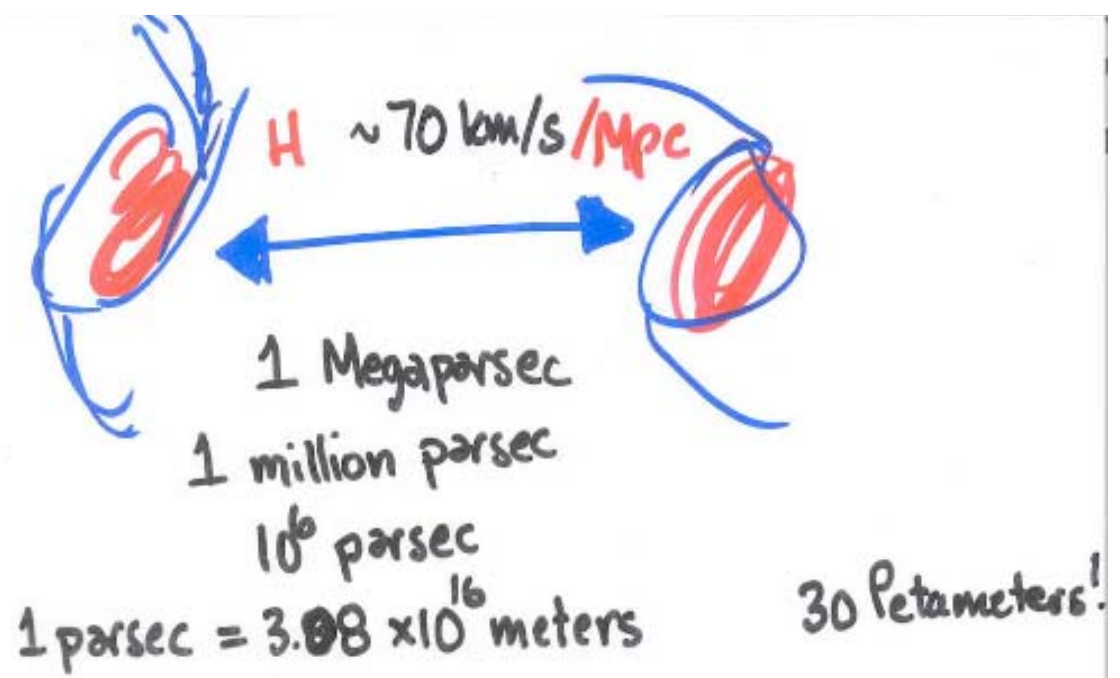 H ~70 km/s/Mpc
1 Megaparsec
1 million parsec
10⁶ parsec
1 parsec = 3.08 ×10¹⁶ meters
30 Petameters!